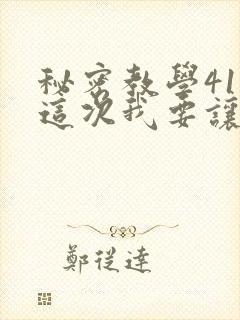 秘密教學41
這次我要讓
鄭從達